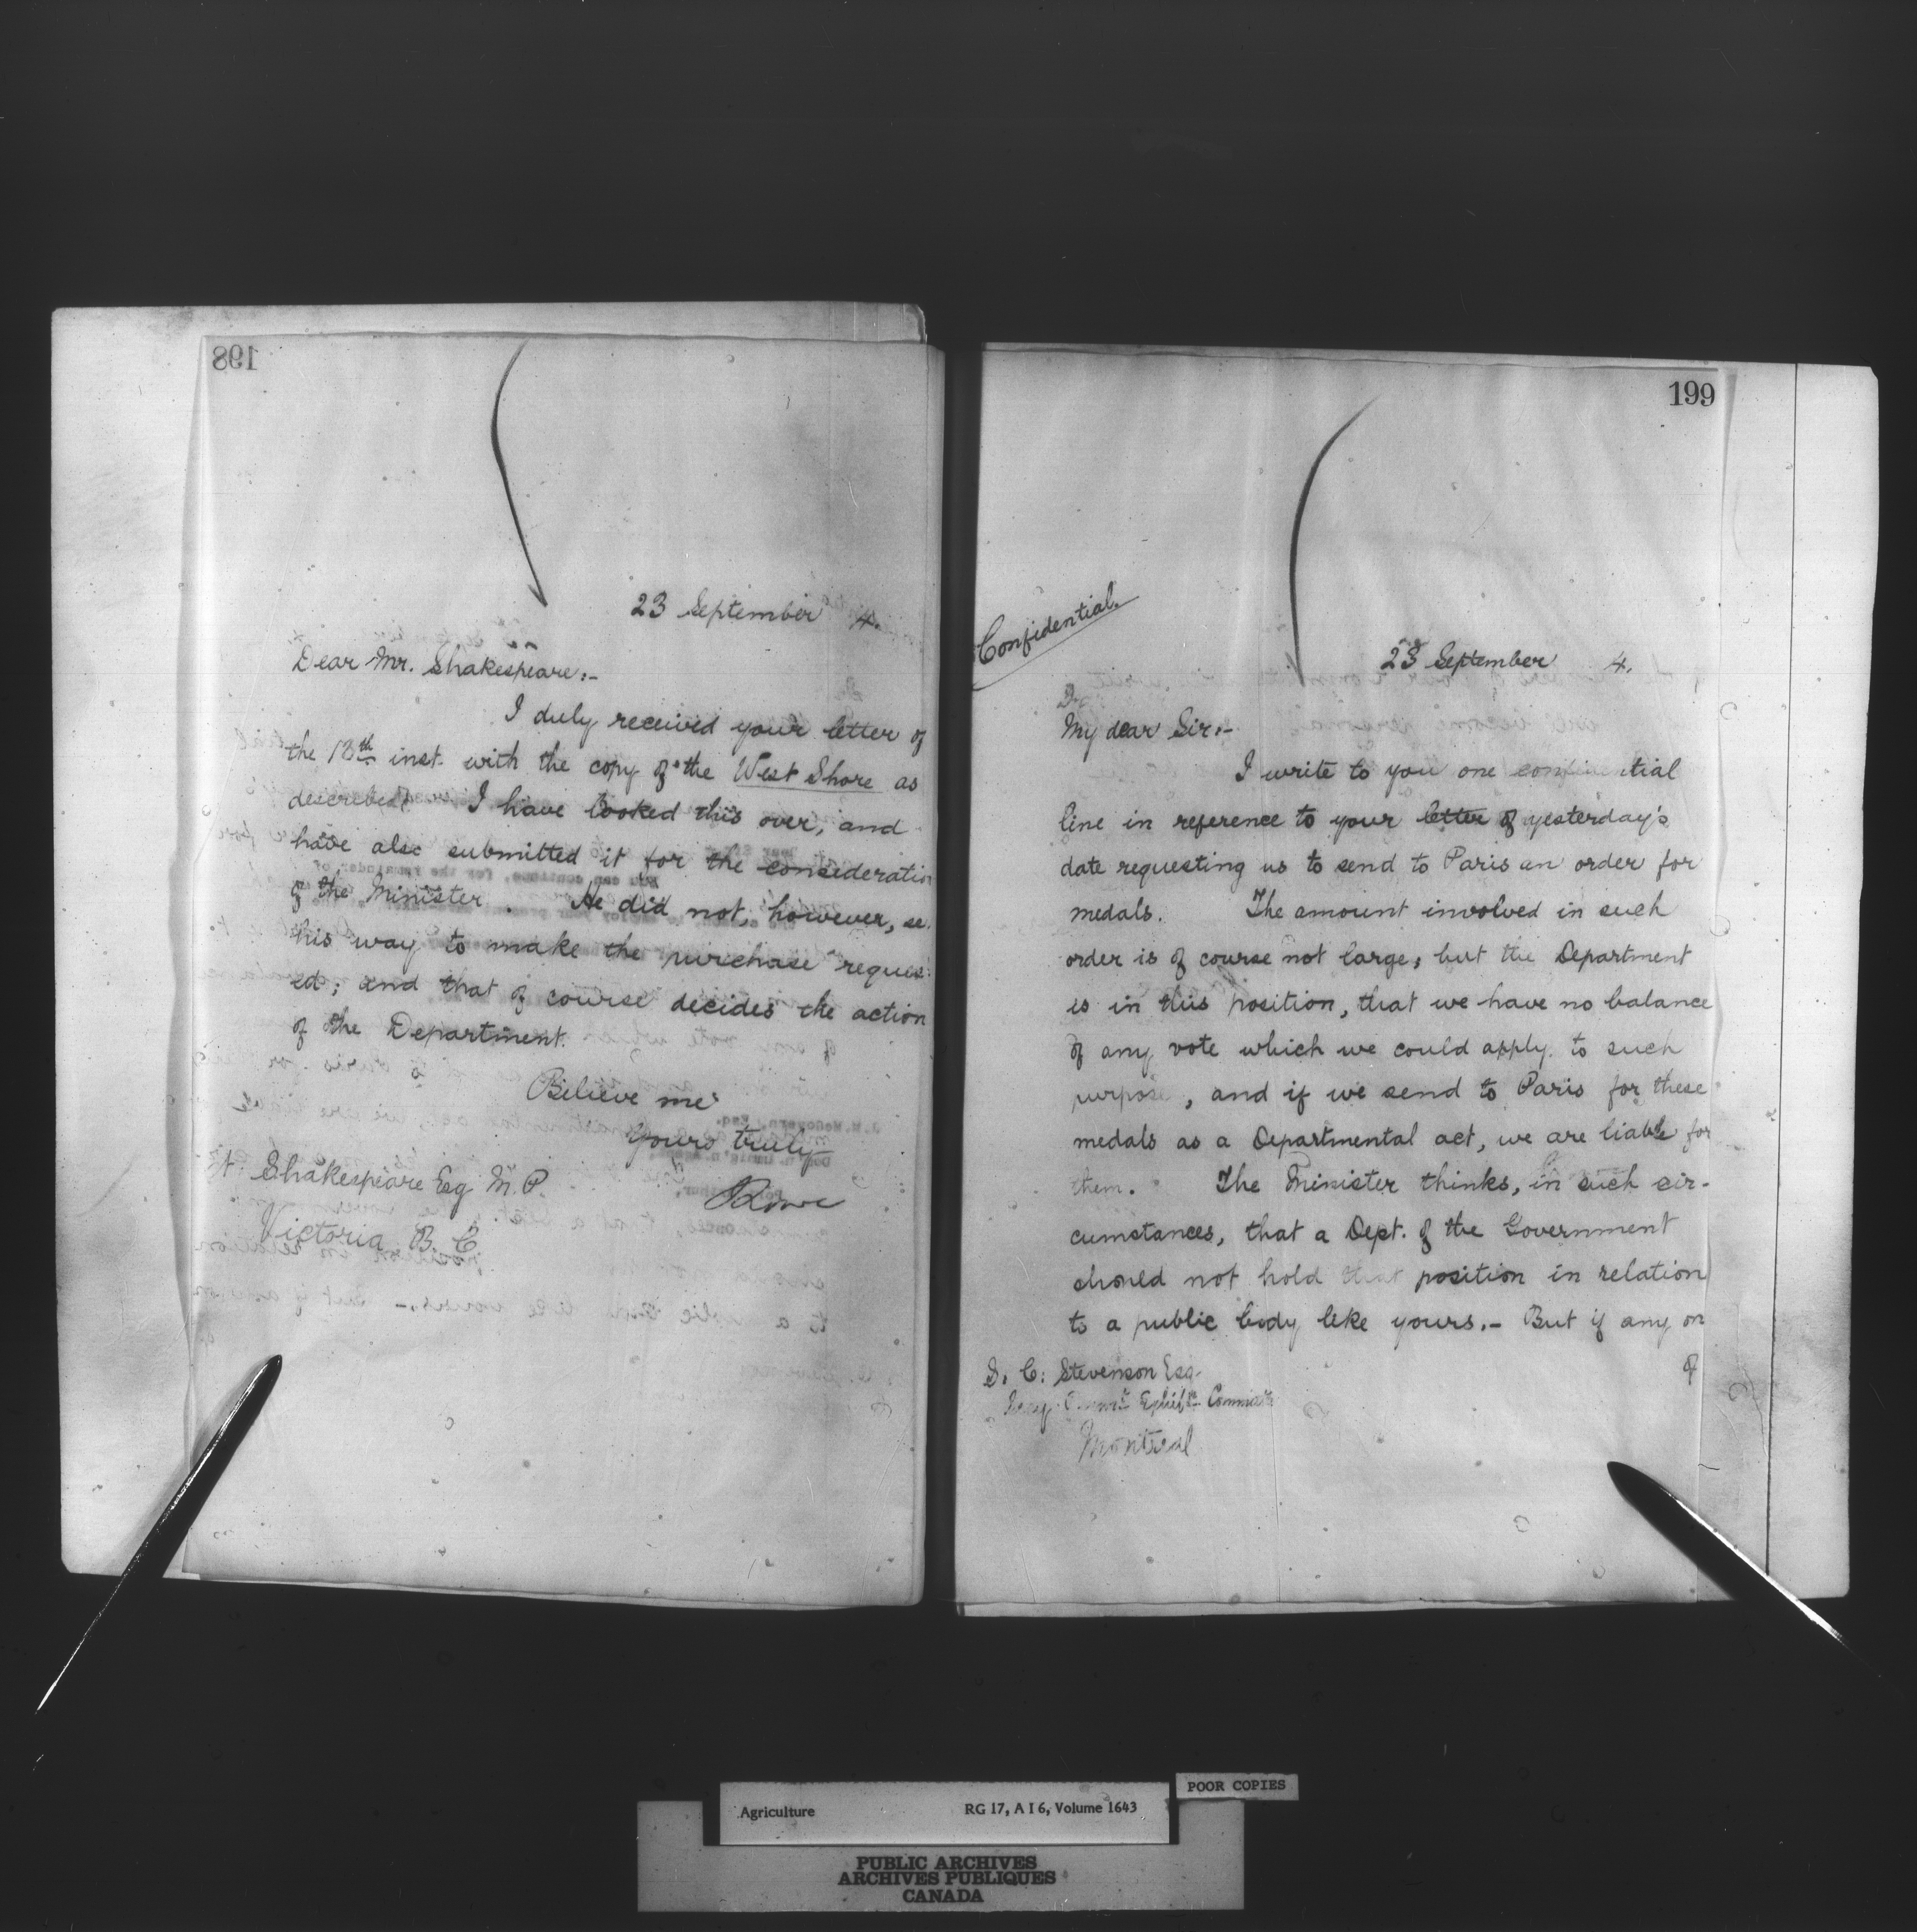 198
23 September 4.
Dear Mr. Shakespeare:-
I duly received your letter of
the 18th inst. with the copy of the West Shore as
described. I have looked this over, and
have also submitted it for the consideration
of the Minister. He did not, however, se
his way to make the purchase reques
ed; and that of course decides the action
of the Department.
Believe me
Yours truly
Shakespeare Esq M.P.
Victoria B.C.
199
Confidential.
23 September 4.
My dear Sir:-
I write to you one confidential
line in reference to your letter of yesterday's
date requesting us to send to Paris an order for
medals. The amount involved in such
order is of course not large; but the Department
is in this position, that we have no balance
of any vote which we could apply to such
purpose, and if we send to Paris for these
medals as a Departmental act, we are liable for
them. The Minister thinks, in such cir-
cumstances, that a Dept. of the Government
should not hold that position in relation
to a public body like yours.- But if any on
of
S. C. Stevenson Esq.
Montreal
POOR COPIES
Agriculture RG 17, A I 6, Volume 1643
PUBLIC ARCHIVES
ARCHIVES PUBLIQUES
CANADA